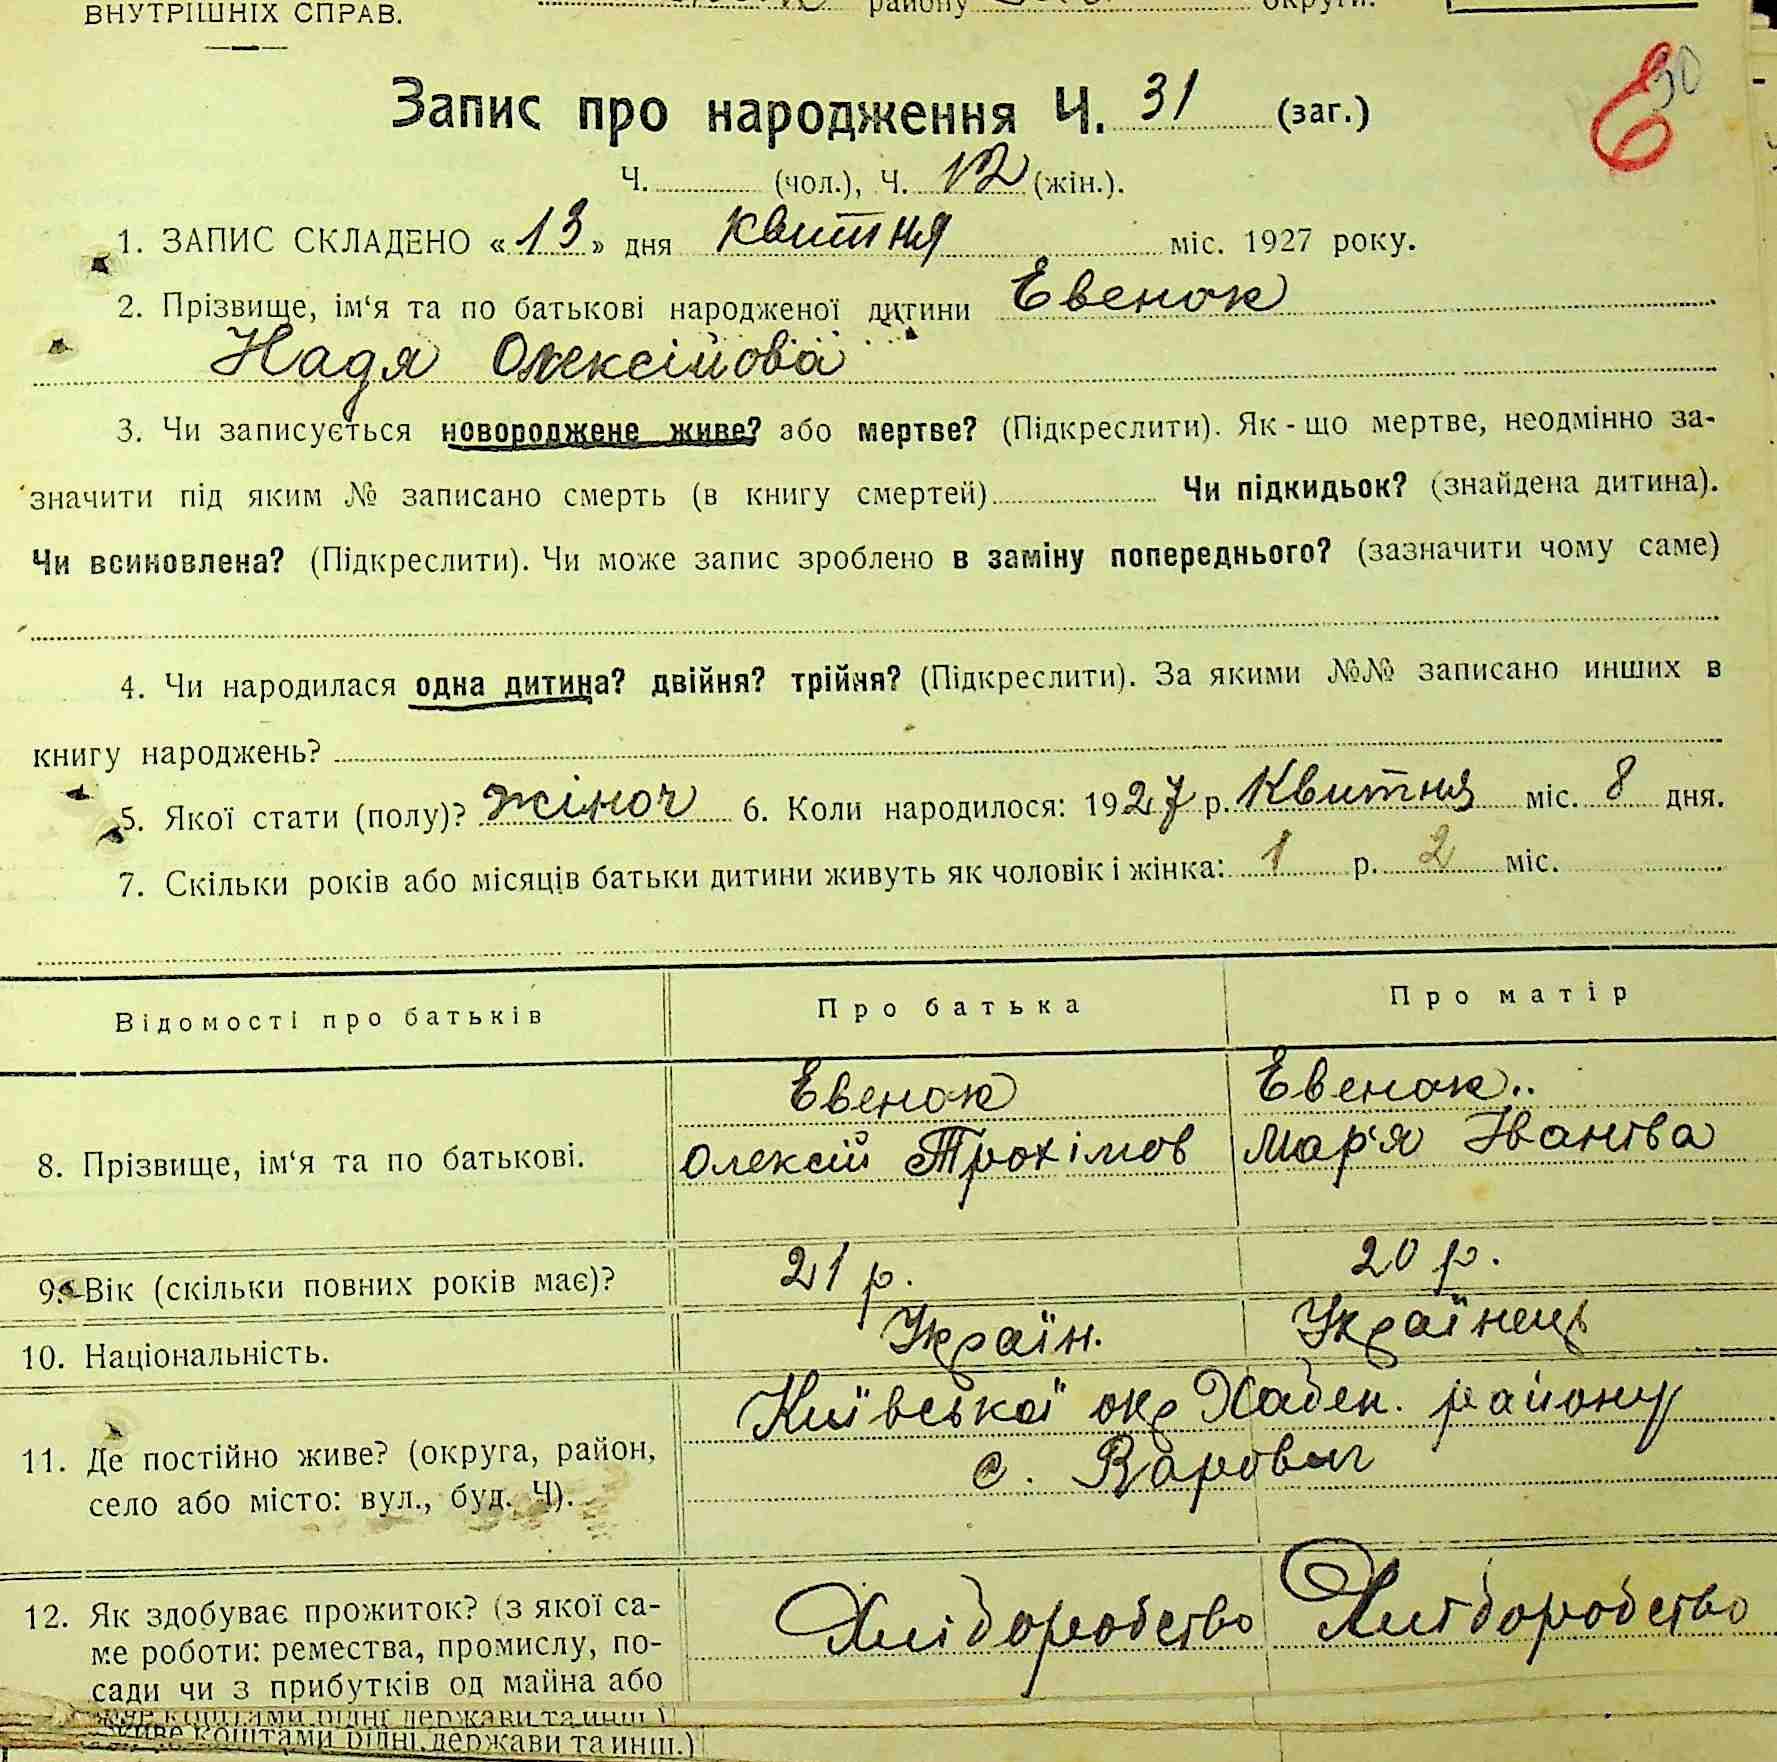 ВНУТРІШНІХ СПРАВ.
району округи.
30
Е
Запис про народження Ч. 31 (заг.)
Ч. (чол.), Ч. 12 (жін.).
1. ЗАПИС СКЛАДЕНО «13» дня квитня міс. 1927 року.
2. Прізвище, ім‘я та по батькові народженої дитини Евенок
Надя Олексійова
3. Чи записується новороджене живе? або мертве? (Підкреслити). Як-що мертве, неодмінно за-
значити під яким № записано смерть (в книгу смертей) Чи підкидьок? (знайдена дитина).
Чи всиновлена? (Підкреслити). Чи може запис зроблено в заміну попереднього? (зазначити чому саме)
4. Чи народилася одна дитина? двійня? трійня? (Підкреслити). За якими №№ записано инших в
книгу народжень?
5. Якої стати (полу)? жіноч 6. Коли народилося: 1927 р. Квитня міс. 8 дня.
7. Скільки років або місяців батьки дитини живуть як чоловік і жінка: 1 р. 2 міс.
Відомості про батьків Про батька Про матір
Евенок Евенок
8. Прізвище, ім‘я та по батькові. Олексій Трохімов Мар'я Іванова
9. Вік (скільки повних років має)? 21 р. 20 р.
10. Національність. Україн. Українець
Київської окр Хабен. району
11. Де постійно живе? (округа, район,
с. Варович
село або місто: вул., буд. Ч).
12. Як здобуває прожиток? (з якої са-
Хліборобство Хліборобство
ме роботи: ремества, промислу, по-
сади чи з прибутків од майна або
живе коштами рідні, держави та инш.)
живе коштами рідні, держави та инш.)